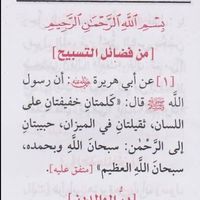 بِسْمِ اللَّهِ الرَّحْمَٰنِ الرَّحِيمِ
[من فضائل التسبيح]
[١] عن أبي هريرة رضي الله عنه: أن رسول
اللَّه ﷺ قال: «كلمتان خفيفتان على
اللسان، ثقيلتان في الميزان، حبيبتان
إلى الرَّحْمٰن: سبحانَ اللَّهِ وبحمده،
سبحانَ اللَّهِ العظيم» [متفق عليه].